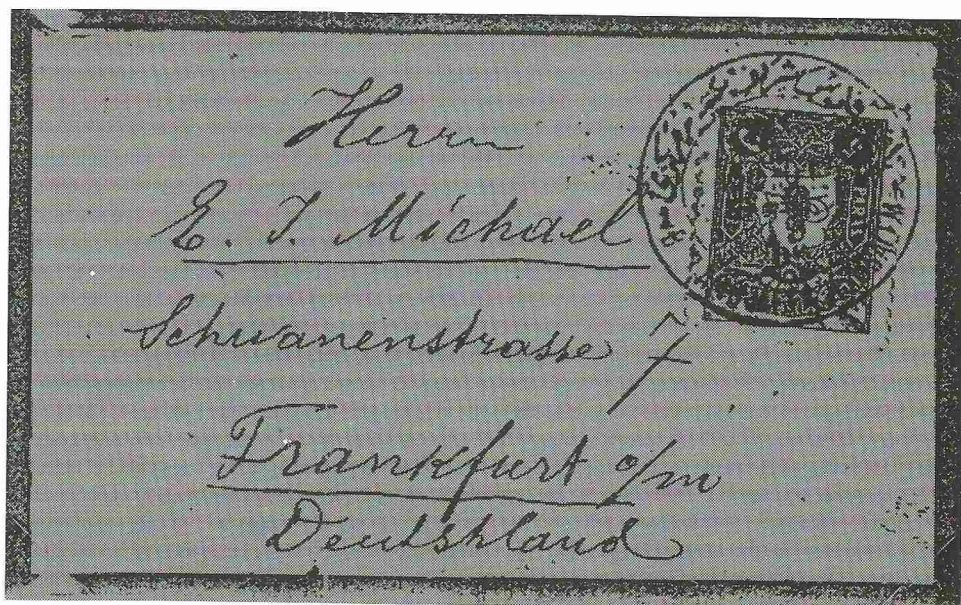 Herrn
E. J. Michael
Schwanenstrasse 7
Frankfurt a/m
Deutshland